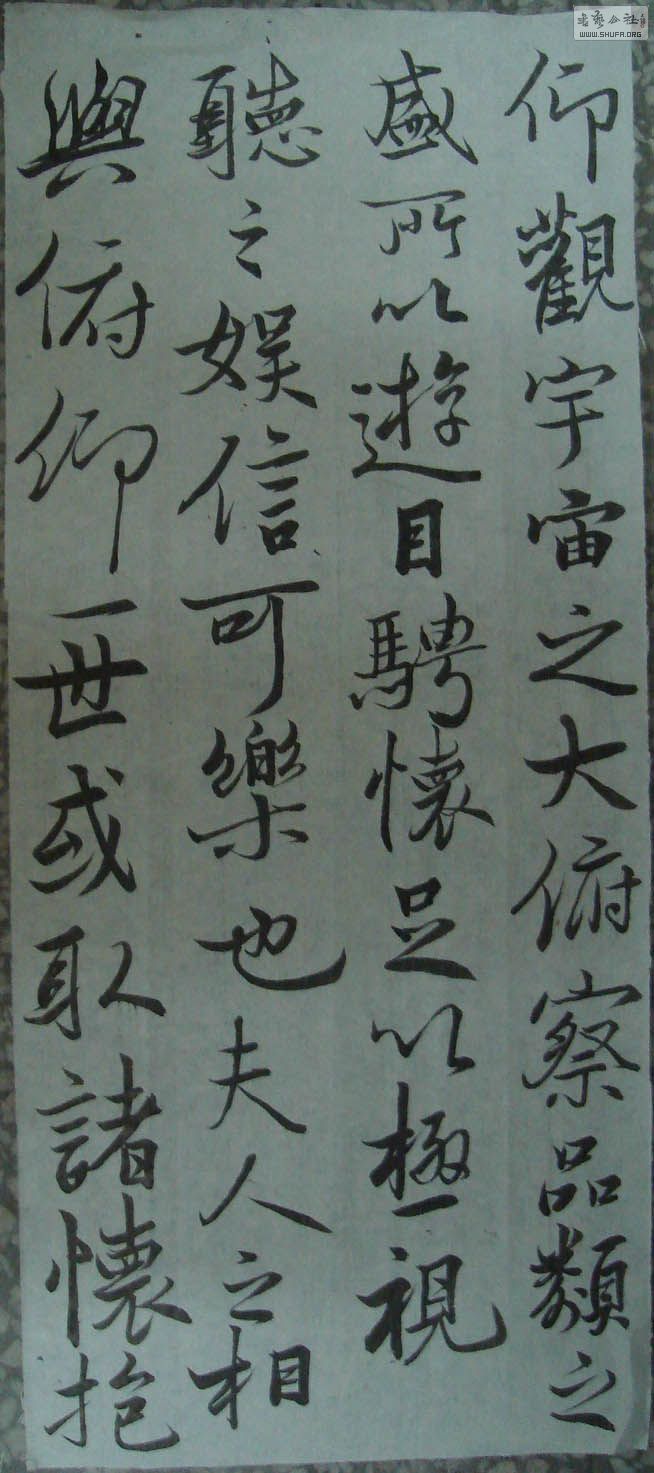 仰觀宇宙之大俯察品類之
盛所以遊目騁懷足以極視
聽之娛信可樂也夫人之相
與俯仰一世或取諸懷抱
書藝公社
WWW.SHUFA.ORG